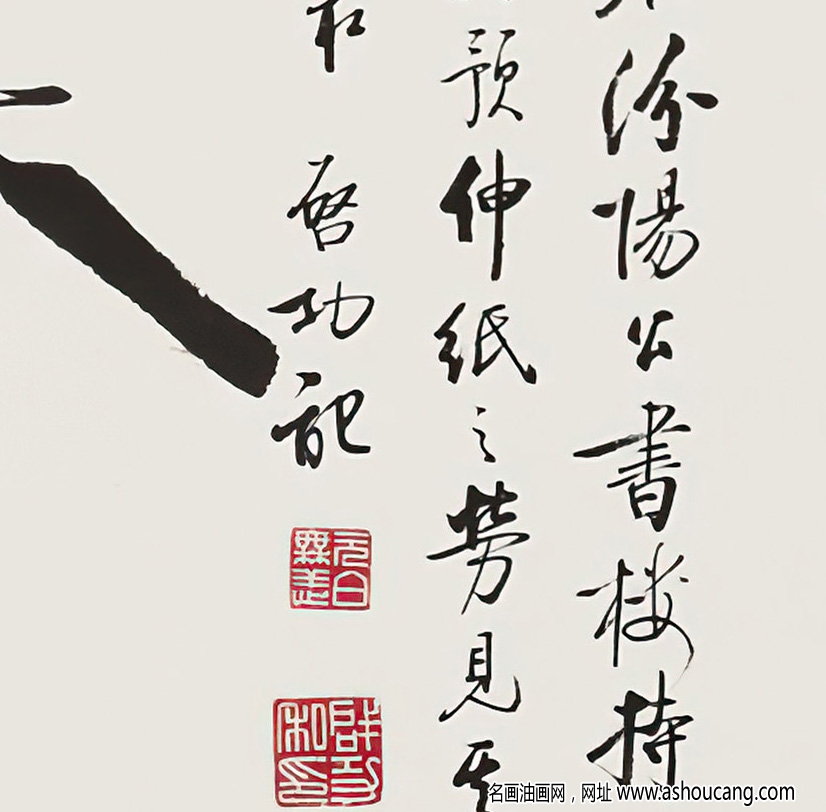 汾陽公書楼持
預伸紙之勞見其
啓功記
元白無恙
啓功私印
名画油画网，网址 www.ashoucang.com